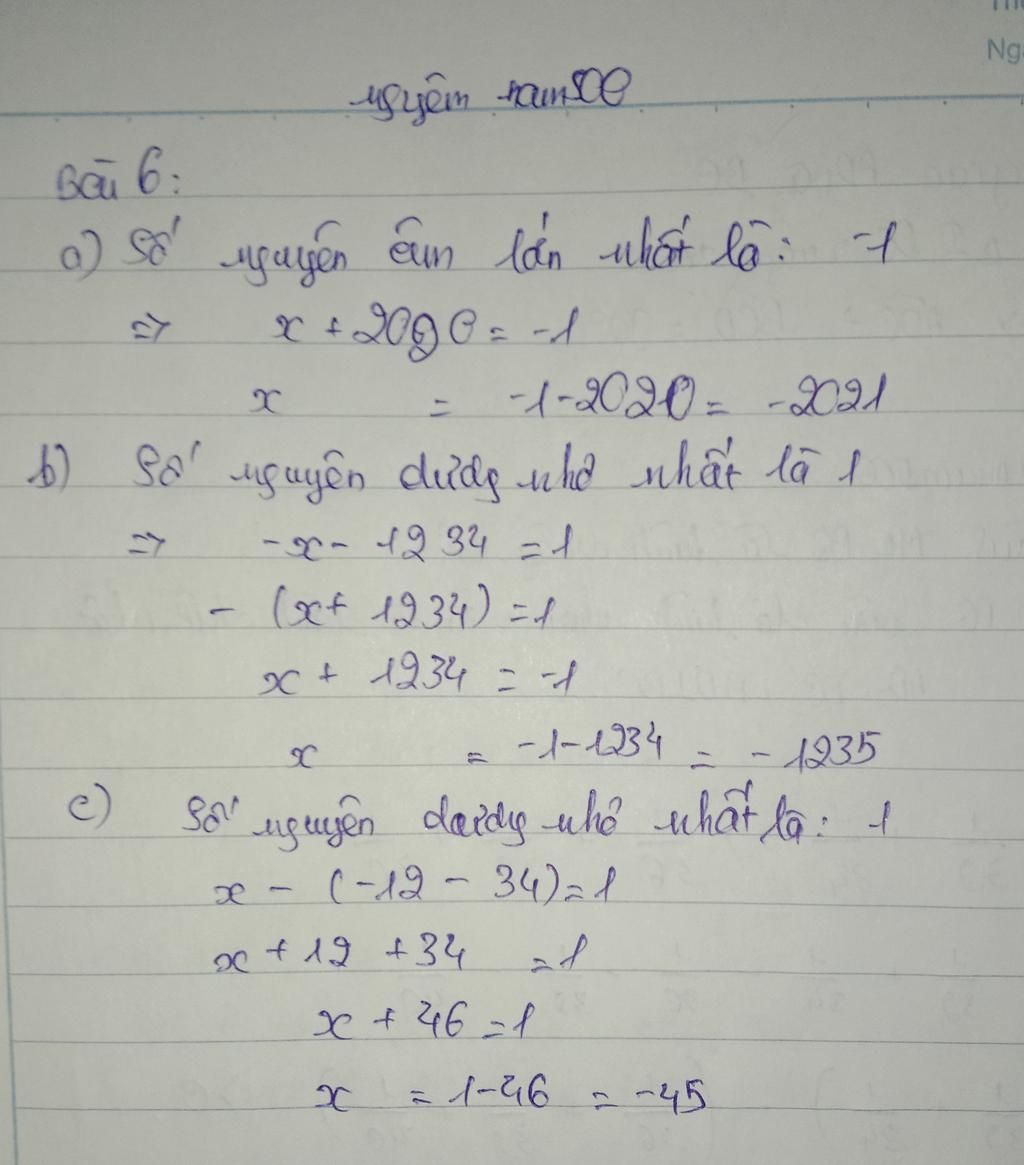 Ng
nguyên nam50Q
Bài 6:
a) Số nguyên âm lớn nhất là: -1
=> x + 2020 = -1
x = -1-2020 = -2021
b) Số nguyên dương nhỏ nhất là 1
=> -x - 1234 = 1
- (x + 1234) = 1
x + 1234 = -1
x = -1-1234 = -1235
c) Số nguyên dương nhỏ nhất là: 1
x - (-12 - 34) = 1
x + 12 + 34 = 1
x + 46 = 1
x = 1-46 = -45